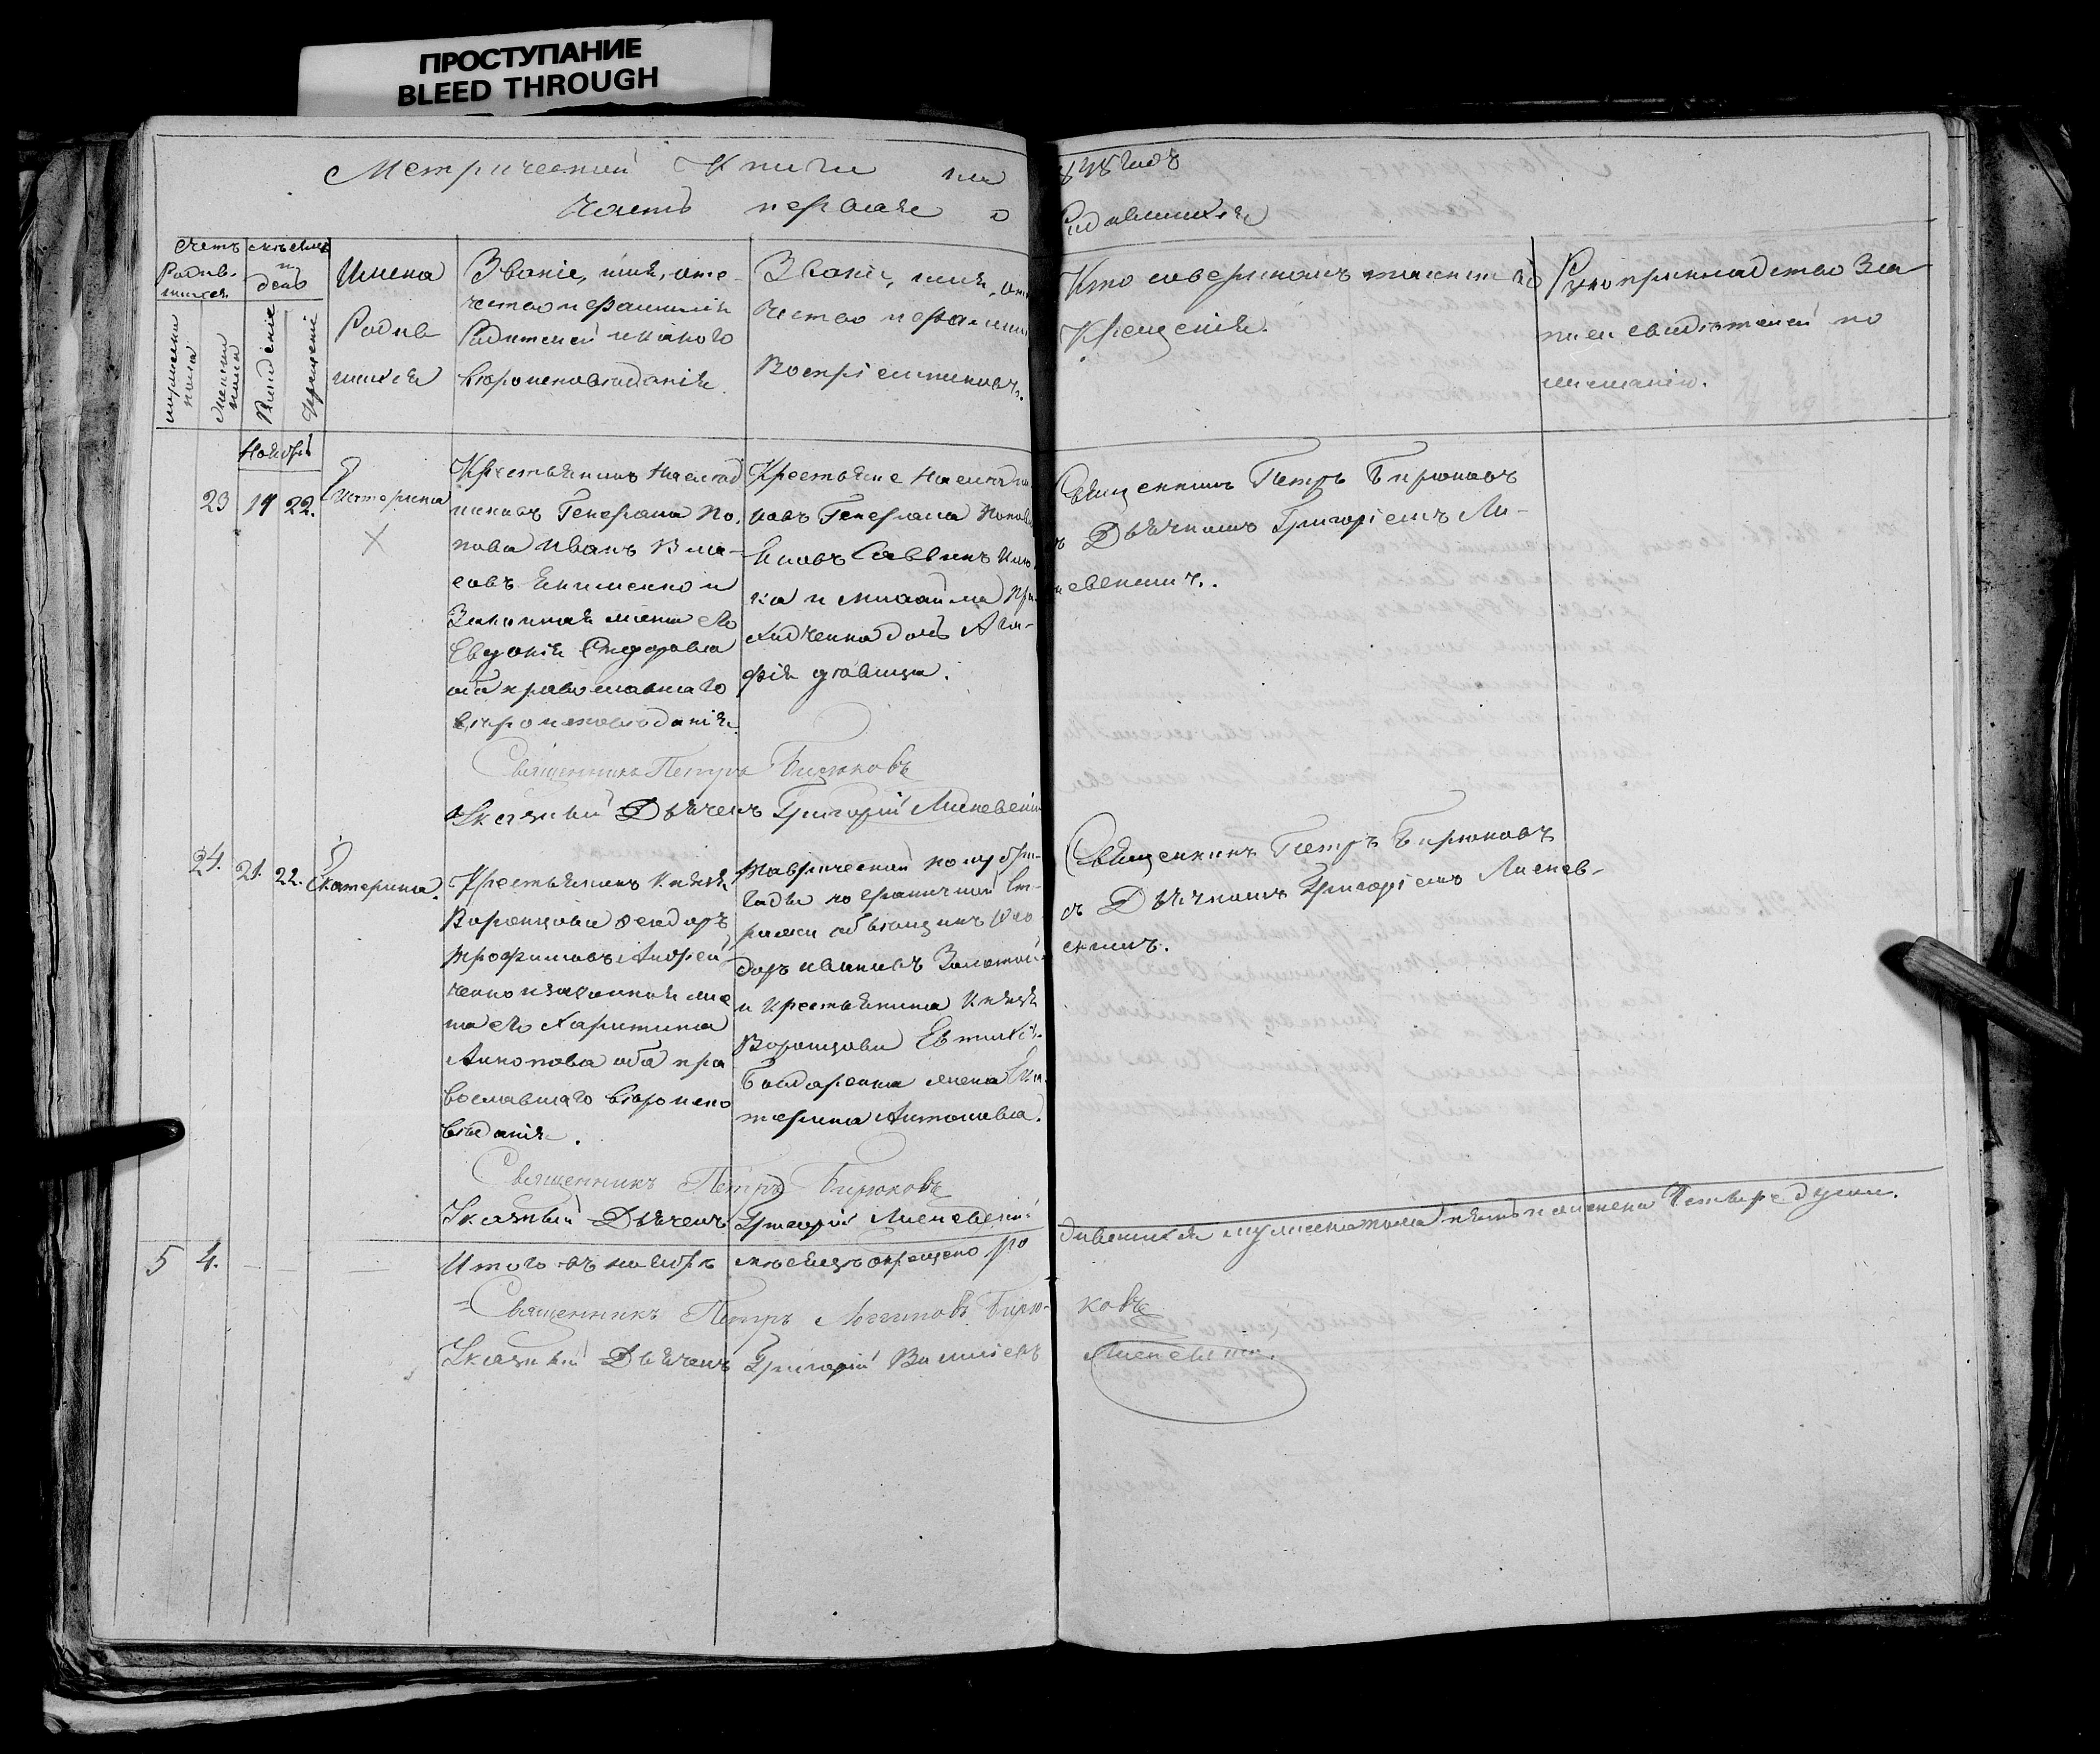 ПРОСТУПАНИЕ
BLEED THROUGH
Метрической Книги на 1848 годъ
Часть первая о Родившихся
Счетъ Родив-
шихся
мужеска пола
женска пола
мѣсяцъ
и
день
Рожденіе
Крещеніе
Имена
Родив
шихся
Званіе, имя, оте-
чество и фамилія
Родителей и какого
вѣроисповѣданія.
Званіе, имя, от
чество и фамилія
Воспріемниковъ.
Кто совершалъ таинство
Крещенія.
Рукоприкладство За-
писи свидѣтелей по
желанію.
Ноябрь
23 19 22.
Екатерина
Крестьянинъ Наслѣд
никовъ Генерала По-
пова Иванъ Вла-
совъ Екименко и
Законная жена его
Евдокія Сидорова
оба православнаго
вѣроисповѣданія.
Крестьяне Наслѣдни
ковъ Генерала Попова
Яковъ Саввинъ
и Михайла
дочь Ага-
фія дѣвица.
Священникъ Петръ Бирюковъ
съ Дьячкомъ Григоріемъ Ли-
невскимъ.
Священникъ Петръ Бирюковъ
Указный Дьячекъ Григорій Линевскій
24. 21. 22. Екатерина.
Крестьянинъ Князя
Воронцова Феодоръ
Трофимовъ Андрей
ченко и законная же
на его Харитина
Антонова оба пра
вославнаго вѣроиспо
вѣданія.
Таврической полубри-
гады пограничной Ст-
ражи объѣздчикъ Фео
доръ Ивановъ
и крестьянина Князя
Воронцова Евтихія
Бондаренка жена Ека
терина Антонова.
Священникъ Петръ Бирюковъ
съ Дьячкомъ Григоріемъ Линев-
скимъ.
Священникъ Петръ Бирюковъ
Указный Дьячекъ Григорій Линевскій
5 4.
Итого въ ноябрѣ мѣсяцѣ окрещено родившихся мужеска пола пять и женска Четыре души.
Священникъ Петръ Логгиновъ Бирюковъ
Указный Дьячекъ Григорій Василіевъ Линевскій.